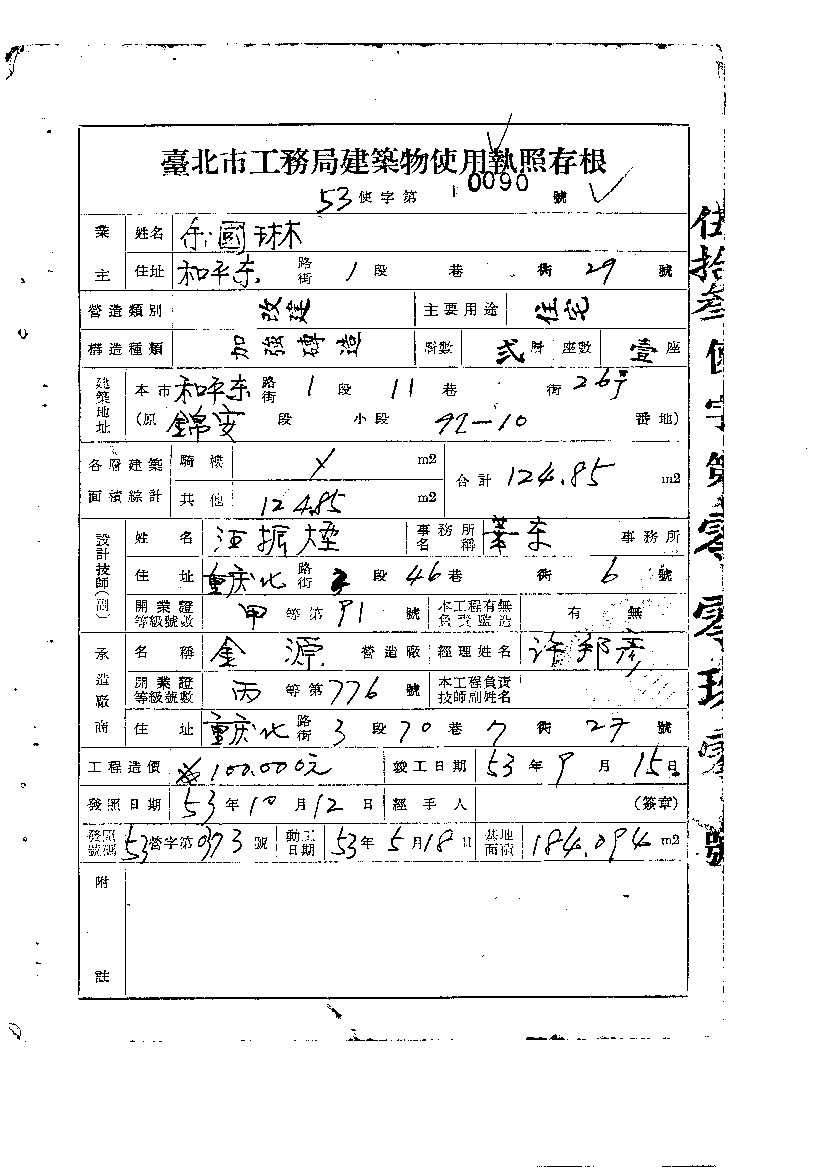 臺北市工務局建築物使用執照存根
53使字第0090號
業主 姓名 余國琳
住址 和平東路街1段 巷 衖29號
營造類別 改建 主要用途 住宅
構造種類 加強磚造 層數 弍層 座數 壹座
建築地址 本市和平東路街1段11巷 衖26号
(原錦安段 小段92-10番地)
各層建築面積綜計 騎樓 X m2 合計124.85m2
其他 124.85 m2
設計技師(副) 姓名 事務所名稱 事務所
住址 重慶北路街3段46巷 衖6號
開業證等級號數 甲等第91號 本工程有無負責監造 有 無
承造廠商 名稱 金源營造廠 經理姓名 許邦彥
開業證等級號數 丙等第776號 本工程負責技師副姓名
住址 重慶北路街3段70巷7衖27號
工程造價 100.000元 竣工日期 53年9月15日
發照日期 53年10月12日 經手人 (簽章)
發照號碼 53營字第0373號 動工日期 53年5月18日 基地面積 184.094m2
附註
伍拾叁使字第零零玖零號